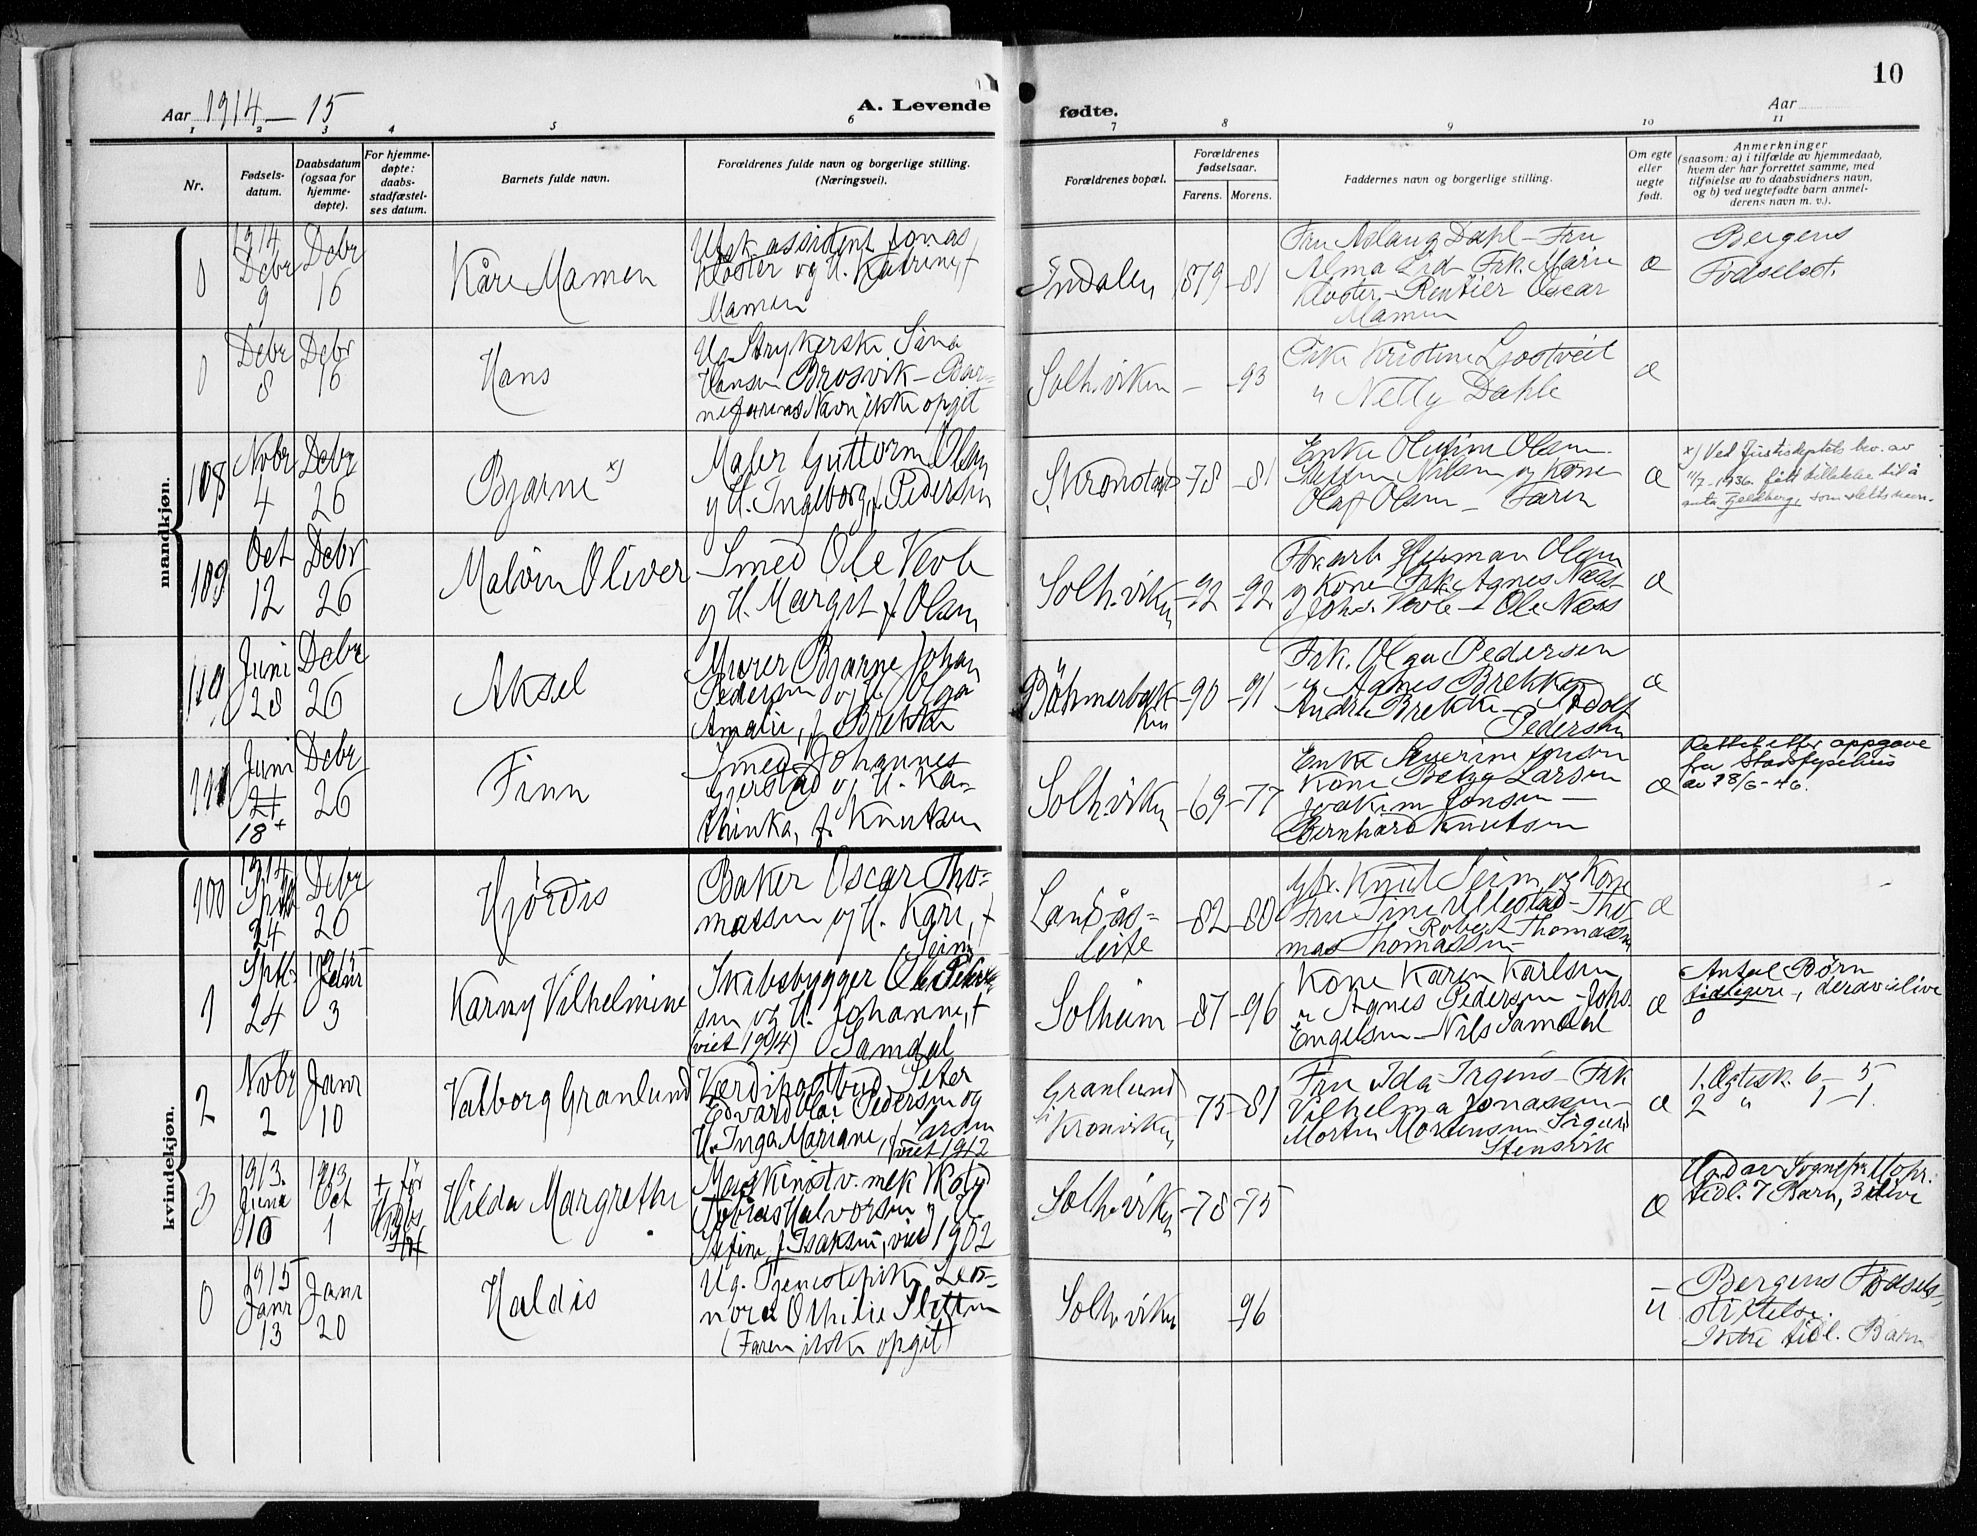 10
Aar 1914-15
A. Levende
fødte.
Aar
1 2 3 4 5 6 7 8 9 10 11
Nr.
Fødsels-
datum.
Daabsdatum
(ogsaa for
hjemme-
døpte).
For hjemme-
døpte:
daabs-
stadfæstel-
ses datum.
Barnets fulde navn.
Forældrenes fulde navn og borgerlige stilling.
(Næringsvei).
Forældrenes bopæl.
Forældrenes
fødselsaar.
Farens. Morens.
Faddernes navn og borgerlige stilling.
Om egte
eller
uegte
født.
Anmerkninger
(saasom: a) i tilfælde av hjemmedaab,
hvem der har forrettet samme, med
tilføielse av to daabsvidners navn,
og b) ved uegtefødte barn anmel-
derens navn m. v.).
mandkjøn.
0
1914
Debr
9
Debr
16
Kåre Mamen
assistent Jonas
Kloster og H. Katrine, f
Mamen
Indalen
1879
-81
Fru Aslaug Dahl - Fru
Alma Lid Frk. Marie
Kloster - Rentier Oscar
Mamen
æ
Bergens
Fødselsst.
0
Debr
8
Debr
16
Hans
Ug Strykerske Sina
Hansen Brosvik - Bar-
nefarens Navn ikke opgit
Solh.viken
-
-93
Frk. Kristine
" Nelly Dahle
æ
108
Nobr
4
Debr
26
Bjarne x)
Maler Guttorm Olsen
og H. Ingeborg, f. Pedersen
Kronstad
-78
-81
Enke Oline Olsen
Nilsen og Kone
Olaf Olsen - Faren
æ
x) Ved Justisdeptets bev. av
11/7-1936 fått tillatelse til å
anta Fjeldberg som slektsnavn.
109
Oct
12
Debr
26
Malvin Oliver
Smed Ole Vevle
og H. Margit f Olsen
Solh.viken
-92
-92
Fbr.arb Herman Olsen
og Kone Frk. Agnes Næss
Johs. Vevle - Ole Næss
æ
110
Juni
28
Debr
26
Aksel
Murer Bjarne Johan
Pedersen og H. Olga
Amalie, f Brekke
Böhmerbakken
-90
-91
Frk. Olga Pedersen
" Agnes Brekke
Andr. Brekke - Adolf
Pedersen
æ
111
Juni
21
18+
Debr
26
Finn
Smed Johannes
Gjerstad og H. Ka-
thinka, f. Knutsen
Solh.viken
-69
-77
Enke Severine Jonsen
Kone Larsen
Joakim Jonsen -
Bernhard Knutsen
æ
Rettet etter oppgave
fra
av 28/6-46.
kvindekjøn.
100
1914
Sptbr
24
Debr
26
Hjördis
Baker Oscar Tho-
massen og H. Kari, f
Seim
Landås-
leite
-82
-80
Gbr. Knut Seim og Kone
Fru Tine Ullestad - Tho-
Robert Thomassen
mas Thomassen -
æ
1
Sptbr
24
1915
Janr
3
Karny Vilhelmine
Skibsbygger Ole Peder-
sen og H. Johanne, f
(viet 1914) Samdal
Solheim
-87
-96
Kone Karen Karlsen
" Agnes Pedersen - Johs.
Engelsen - Nils Samdal
æ
Antal Børn
tidligere, derav ilive
0
2
Nobr
2
Janr
10
Valborg Granlund
Værdipostbud Peter
Edvard Olai Pedersen og
H. Inga Mariane, f Larsen
viet 1912
Granlund
Kronviken
-75
-81
Fru Ida Irgens - Frk
Vilhelma Jonassen -
Morten Mortensen Sigurd
Stensvik
æ
1. Ægtesk. 6 - 5
2 " 1 - 1.
3
1913.
Juni
10
1913
Oct
1
Hilda Margrethe
Maskinist v. mek Verksted
Tobias Halvorsen og H
Stefine f. Isaksen, viet 1902
Solh.viken
-78
-75
æ
Sognepr. Mohr.
tidl. 7 Barn, 3 ilive
0
1915
Janr
13
Janr
20
Haldis
Ug. Tjenestepike Leo-
nora Othilie Sletten
(Faren ikke opgit)
Solh.viken
-96
u
Bergens Fødsels-
stiftelse.
Ikke tidl. Barn